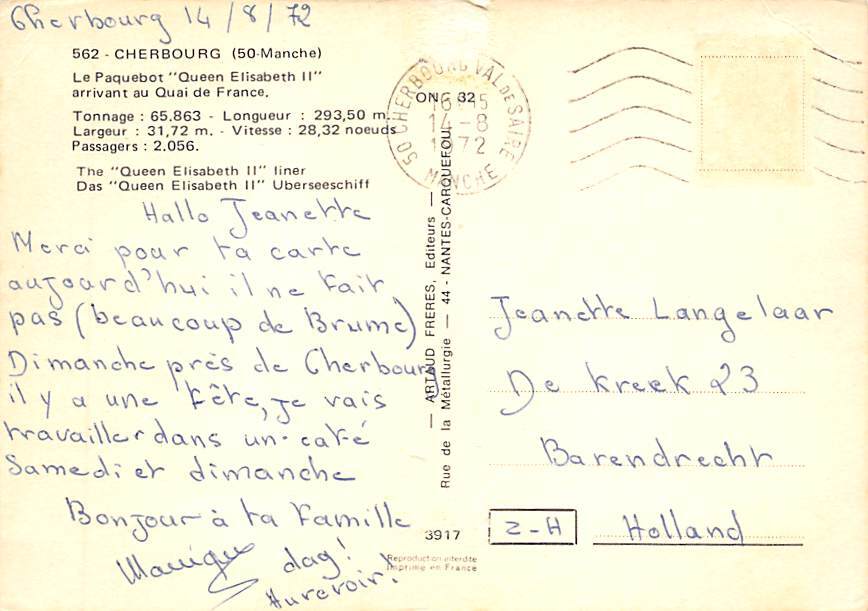 Cherbourg 14/8/72
562 - CHERBOURG (50-Manche)
Le Paquebot "Queen Elisabeth II"
arrivant au Quai de France.
Tonnage : 65.863 - Longueur : 293,50 m.
Largeur : 31,72 m. - Vitesse : 28,32 noeuds
Passagers : 2.056.
The "Queen Elisabeth II" liner
Das "Queen Elisabeth II" Uberseeschiff
Hallo Jeanette
Merci pour ta carte
aujourd'hui il ne fait
pas (beaucoup de Brume)
Dimanche près de Cherbourg
il y a une fête, je vais
travailler dans un café
Samedi et dimanche
Bonjour à ta famille
Monique dag!
Aurevoir!
50 CHERBOURG VAL DE SAIRE
16-15
14-8
1972
MANCHE
ON 32
— ARTAUD FRERES, Editeurs —
Rue de la Métallurgie — 44 - NANTES-CARQUEFOU
3917
Reproduction interdite
Imprimé en France
Jeanette Langelaar
De Kreek 23
Barendrecht
Z-H Holland